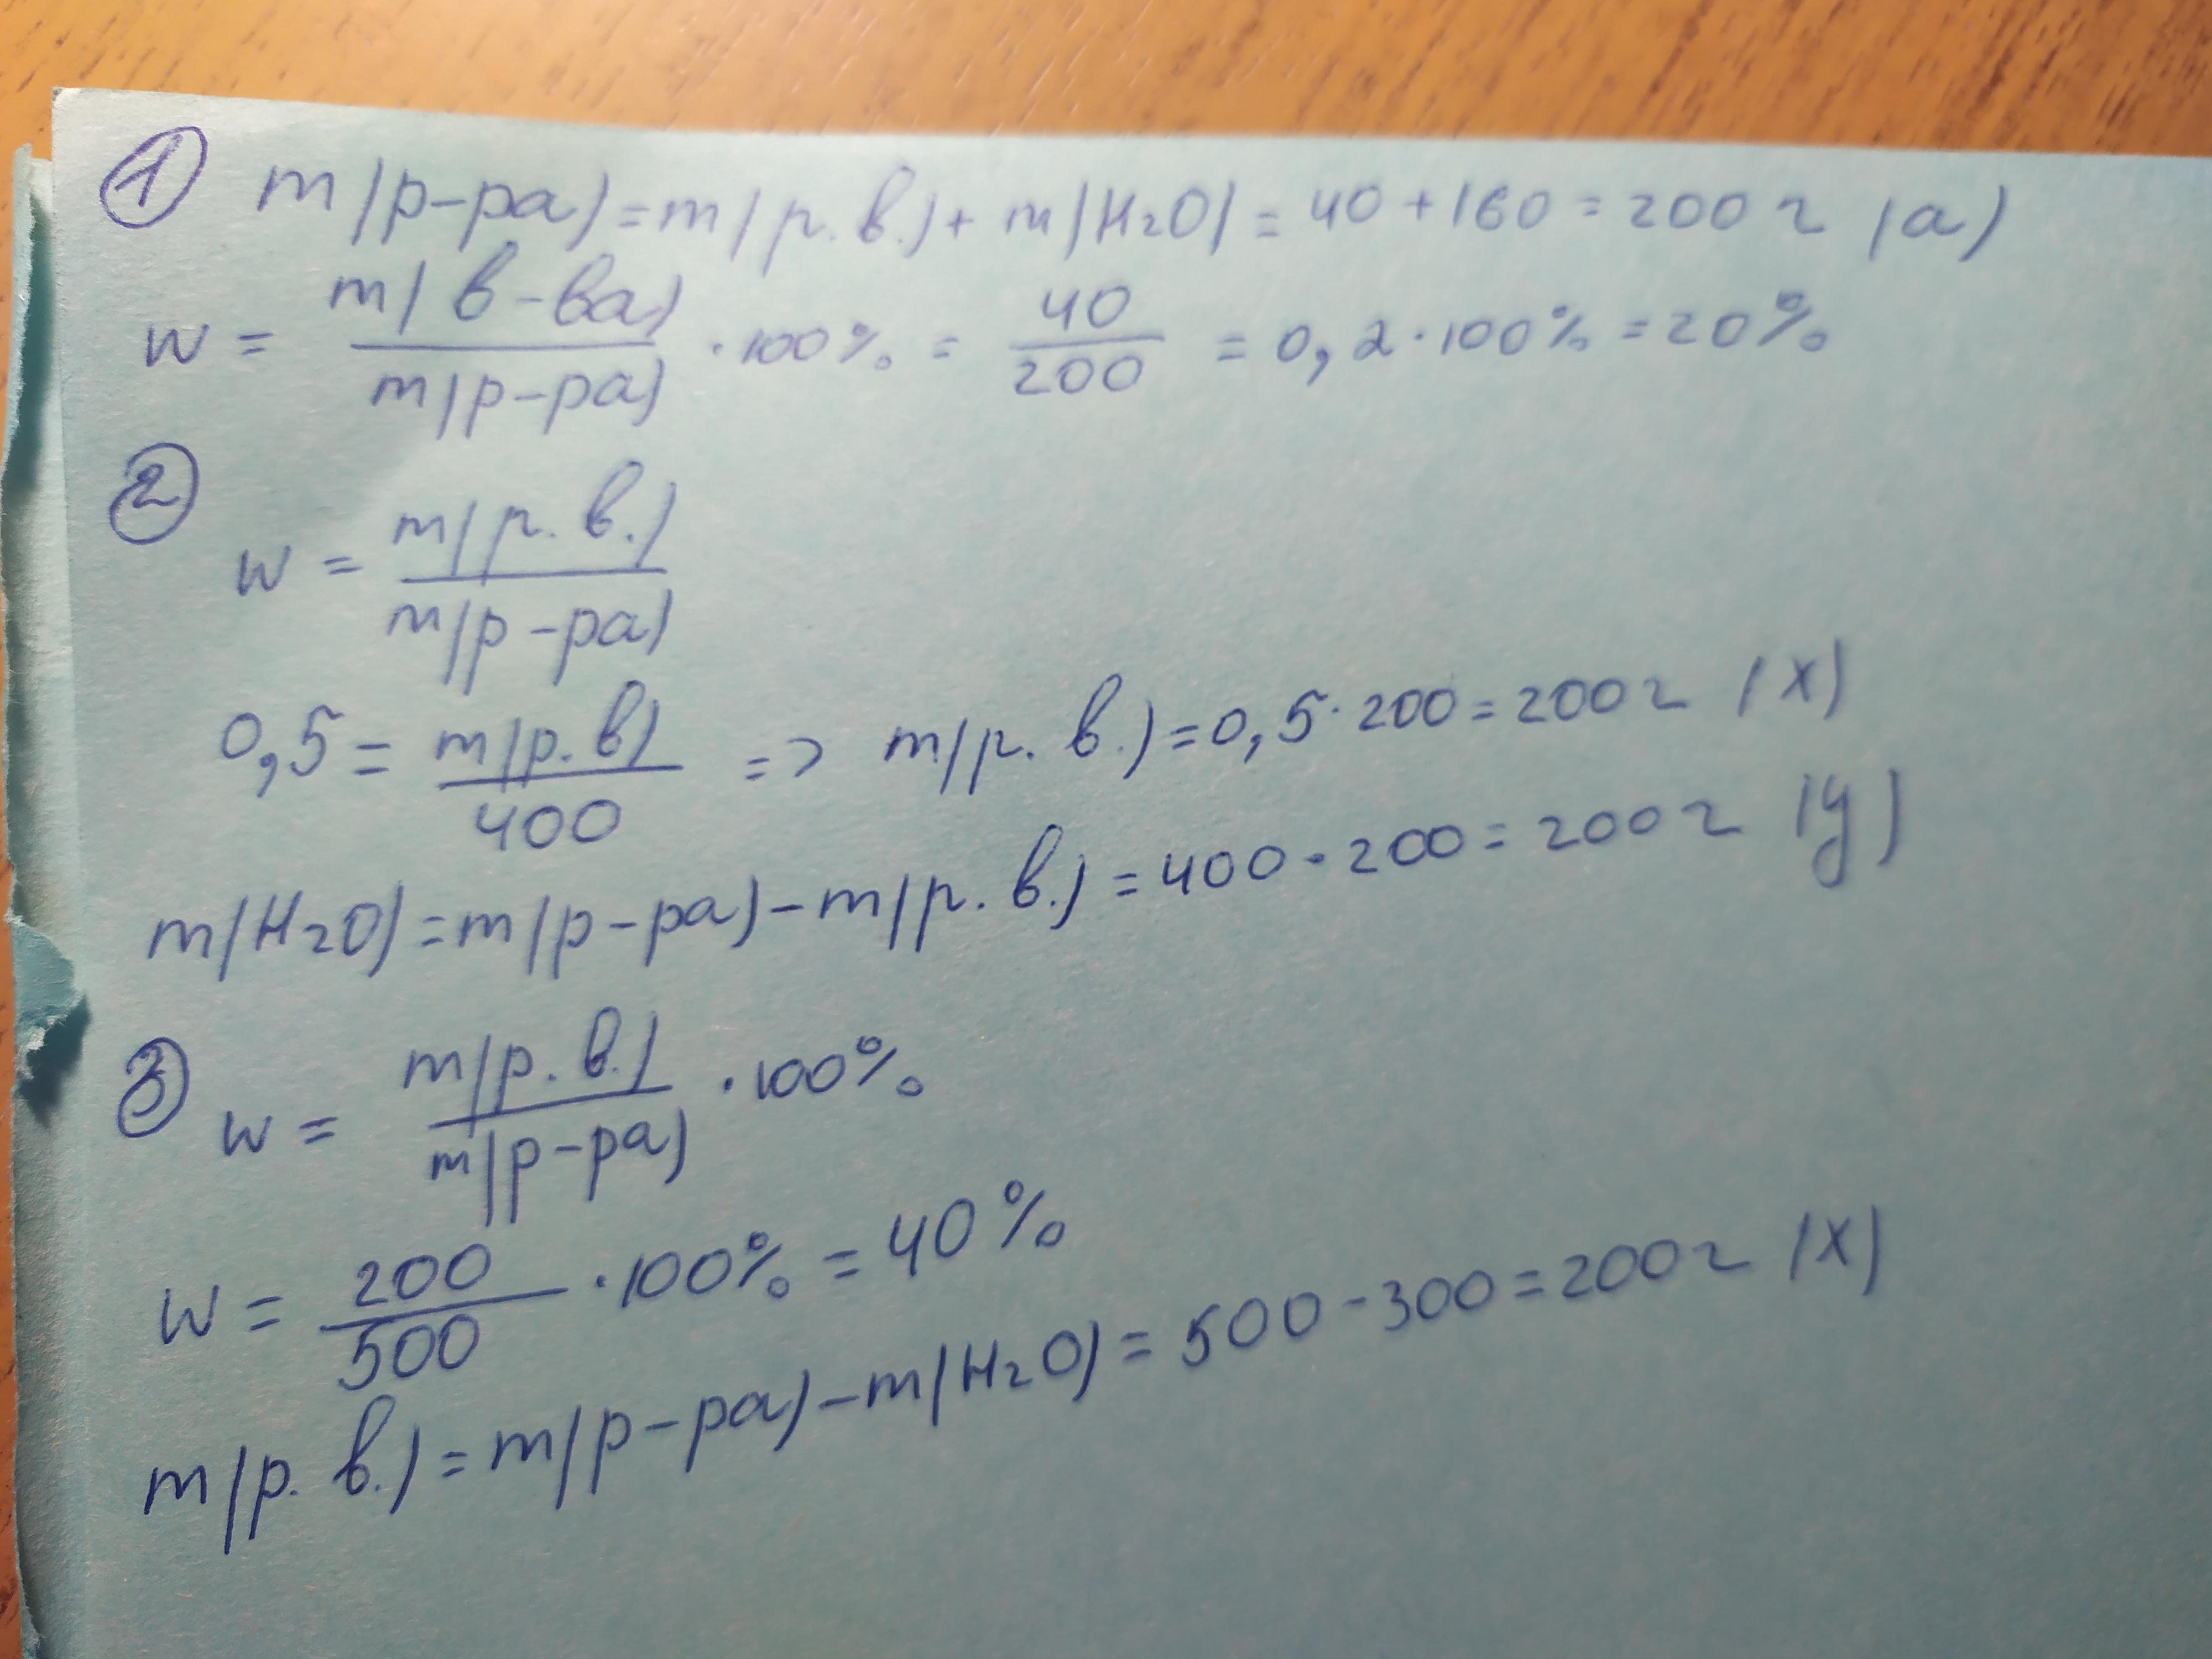 1 m(р-ра) = m(р. в.) + m(H2O) = 40 + 160 = 200 г (а)
w = m(в-ва) / m(р-ра) · 100% = 40 / 200 = 0,2 · 100% = 20%
2
w = m(р. в.) / m(р-ра)
0,5 = m(р. в) / 400 => m(р. в.) = 0,5 · 200 = 200 г (х)
m(H2O) = m(р-ра) - m(р. в.) = 400 - 200 = 200 г (у)
3 w = m(р. в.) / m(р-ра) · 100%
w = 200 / 500 · 100% = 40%
m(р. в.) = m(р-ра) - m(H2O) = 500 - 300 = 200 г (х)